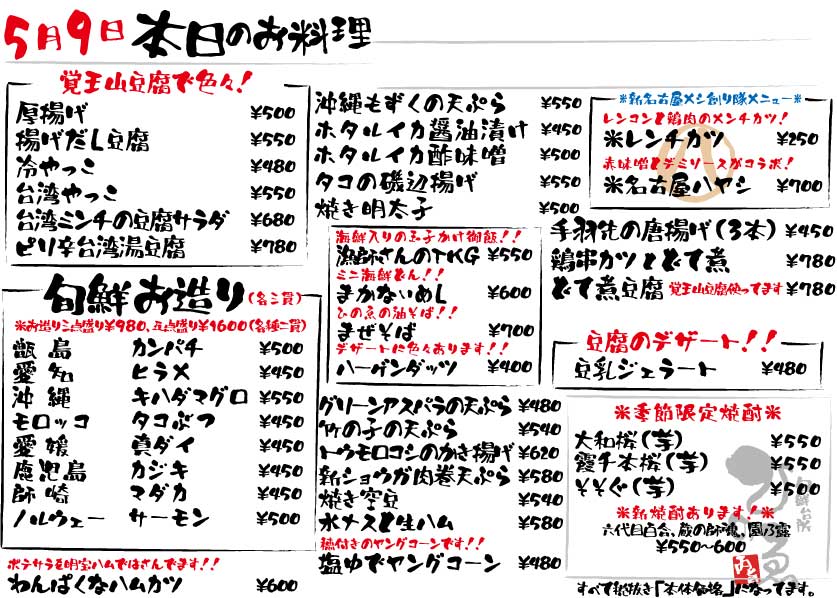 5月9日 本日のお料理
覚王山豆腐で色々!
厚揚げ ¥500
揚げだし豆腐 ¥550
冷やっこ ¥480
台湾やっこ ¥550
台湾ミンチの豆腐サラダ ¥680
ピリ辛台湾湯豆腐 ¥780
旬鮮お造り(各三貫)
※お造り三点盛り¥980、五点盛り¥1600(各種二貫)
甑島 カンパチ ¥500
愛知 ヒラメ ¥450
沖縄 キハダマグロ ¥550
モロッコ タコぶつ ¥450
愛媛 真ダイ ¥450
鹿児島 カジキ ¥450
師崎 マダカ ¥450
ノルウェー サーモン ¥500
ポテサラを明宝ハムではさんでます!!
わんぱくなハムカツ ¥600
沖縄もずくの天ぷら ¥550
ホタルイカ醤油漬け ¥450
ホタルイカ酢味噌 ¥500
タコの磯辺揚げ ¥550
焼き明太子 ¥500
海鮮入りの玉子かけ御飯!!
漁師さんのTKG ¥550
ミニ海鮮どん!!
まかないめし ¥600
ひの魚の油そば!!
まぜそば ¥700
デザートに色々あります!!
ハーゲンダッツ ¥400
グリーンアスパラの天ぷら ¥480
竹の子の天ぷら ¥540
トウモロコシのかき揚げ ¥620
新ショウガ肉巻天ぷら ¥580
焼き空豆 ¥540
水ナスと生ハム ¥580
穂付きのヤングコーンです!!
塩ゆでヤングコーン ¥480
※新名古屋メシ創り隊メニュー※
レンコンと鶏肉のメンチカツ!
※レンチカツ ¥250
赤味噌とデミソースがコラボ!
※名古屋ハヤシ ¥700
手羽先の唐揚げ(3本) ¥450
鶏串カツとどて煮 ¥780
どて煮豆腐 覚王山豆腐使ってます ¥780
豆腐のデザート!!
豆乳ジェラート ¥480
※季節限定焼酎※
大和桜(芋) ¥550
霞千本桜(芋) ¥550
そそぐ(芋) ¥550
※新焼酎あります!※
六代目百合、蔵の師魂、園乃露
¥550~600
すべて税抜き「本体価格」になってます。